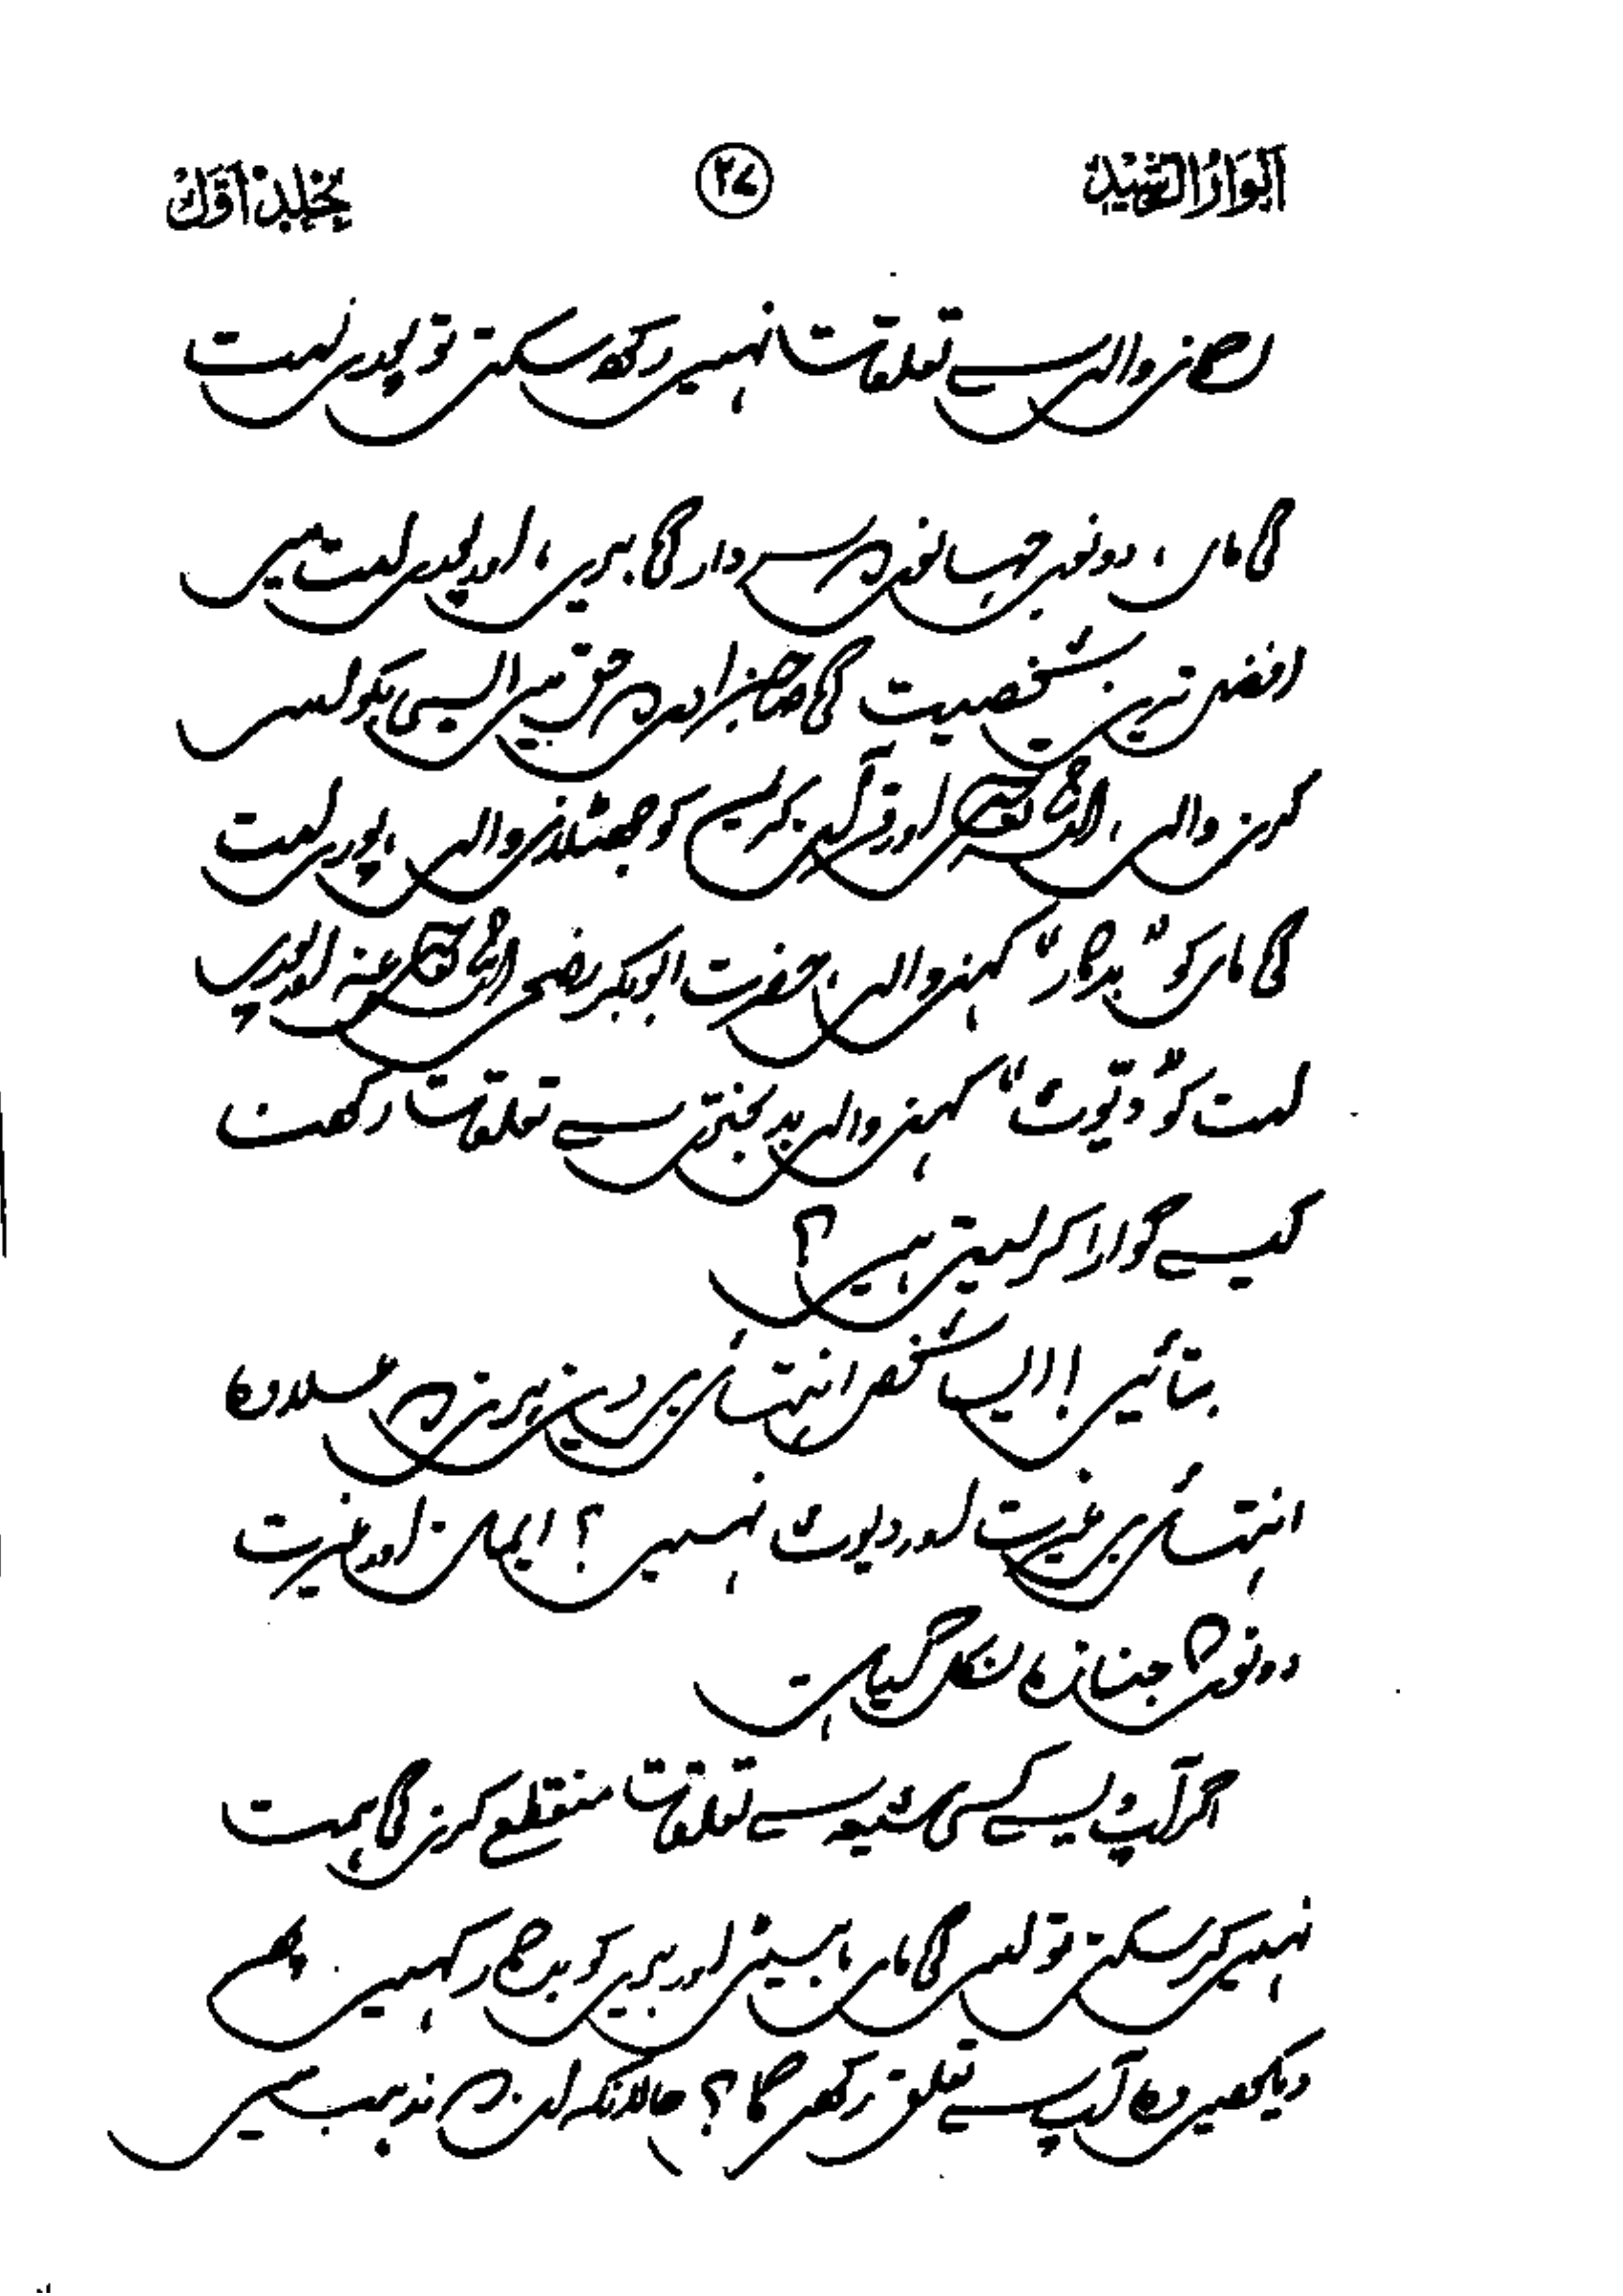 انوار الرشید ۲۷ جلد اول
رکھنے والوں سے تعلقات نہیں رکھ سکتے تو پوری امت
کی ماں، دونوں جہانوں کے سردار کی بیوی، اور پوری امت میں
افضل ترین شخصیت کی صاحبزادی کے حق میں ایسی بکواس
کرنے والوں، اللہ تعالیٰ اور قرآن کریم کو جھٹلانے والوں، پوری امت
کی ماں کو "بدکار" کہنے والوں، حضرت ابوبکر رضی اللہ تعالیٰ عنہ اور پوری
امت کو "دیّوث" کہنے والے بدبختوں سے تعلقات رکھنا
کیسے گوارا کر لیتے ہیں؟
بتائیں! ایسا شخص انتہائی بے دین ہونے کے علاوہ
انتہائی بے غیرت اور دیوث نہیں؟ ایمان اور غیرت
دونوں کا جنازہ نکل گیا ہے۔
اگر آپ ویسے کسی شیعہ سے تعلقات منقطع کرنے کی ہمت
نہیں کر سکتے تو اس کی ماں، بہن، بیٹی اور بیوی کو بدکار کہیں، پھر
دیکھیں وہ آپ سے تعلق رکھے گا؟ حالانکہ ان کے مذہب میں